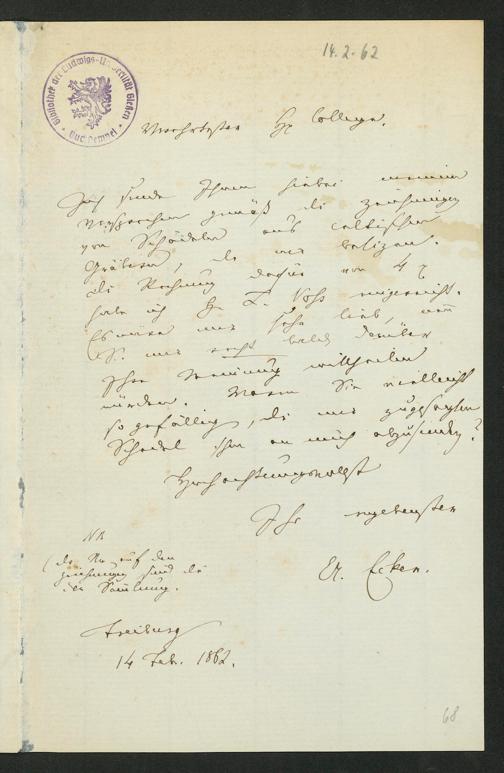 14.2.62
Bibliothek der Ludwigs-Universität Gießen
Buchstempel
Verehrtester Hr College.
Ich sende Ihnen hiebei meinem
Versprechen gemäß die Zeichnungen
von Schädeln aus celtischen
Gräbern, die wir besitzen.
Die Rechnung dafür von 4
habe ich Hr. L. Voss eingereicht.
Es wäre mir sehr lieb, wenn
Sie mir recht bald darüber
Ihre Meinung mittheilen
würden. Wären Sie vielleicht
so gefällig, die mir zugesagten
Schedel an mich abzusenden?
Hochachtungsvollst
Ihr ergebenster
A. Ecker.
NB
(die No auf den
Zeichnungen sind die
der Samlung.
Freiburg
14 Feb. 1862.
68